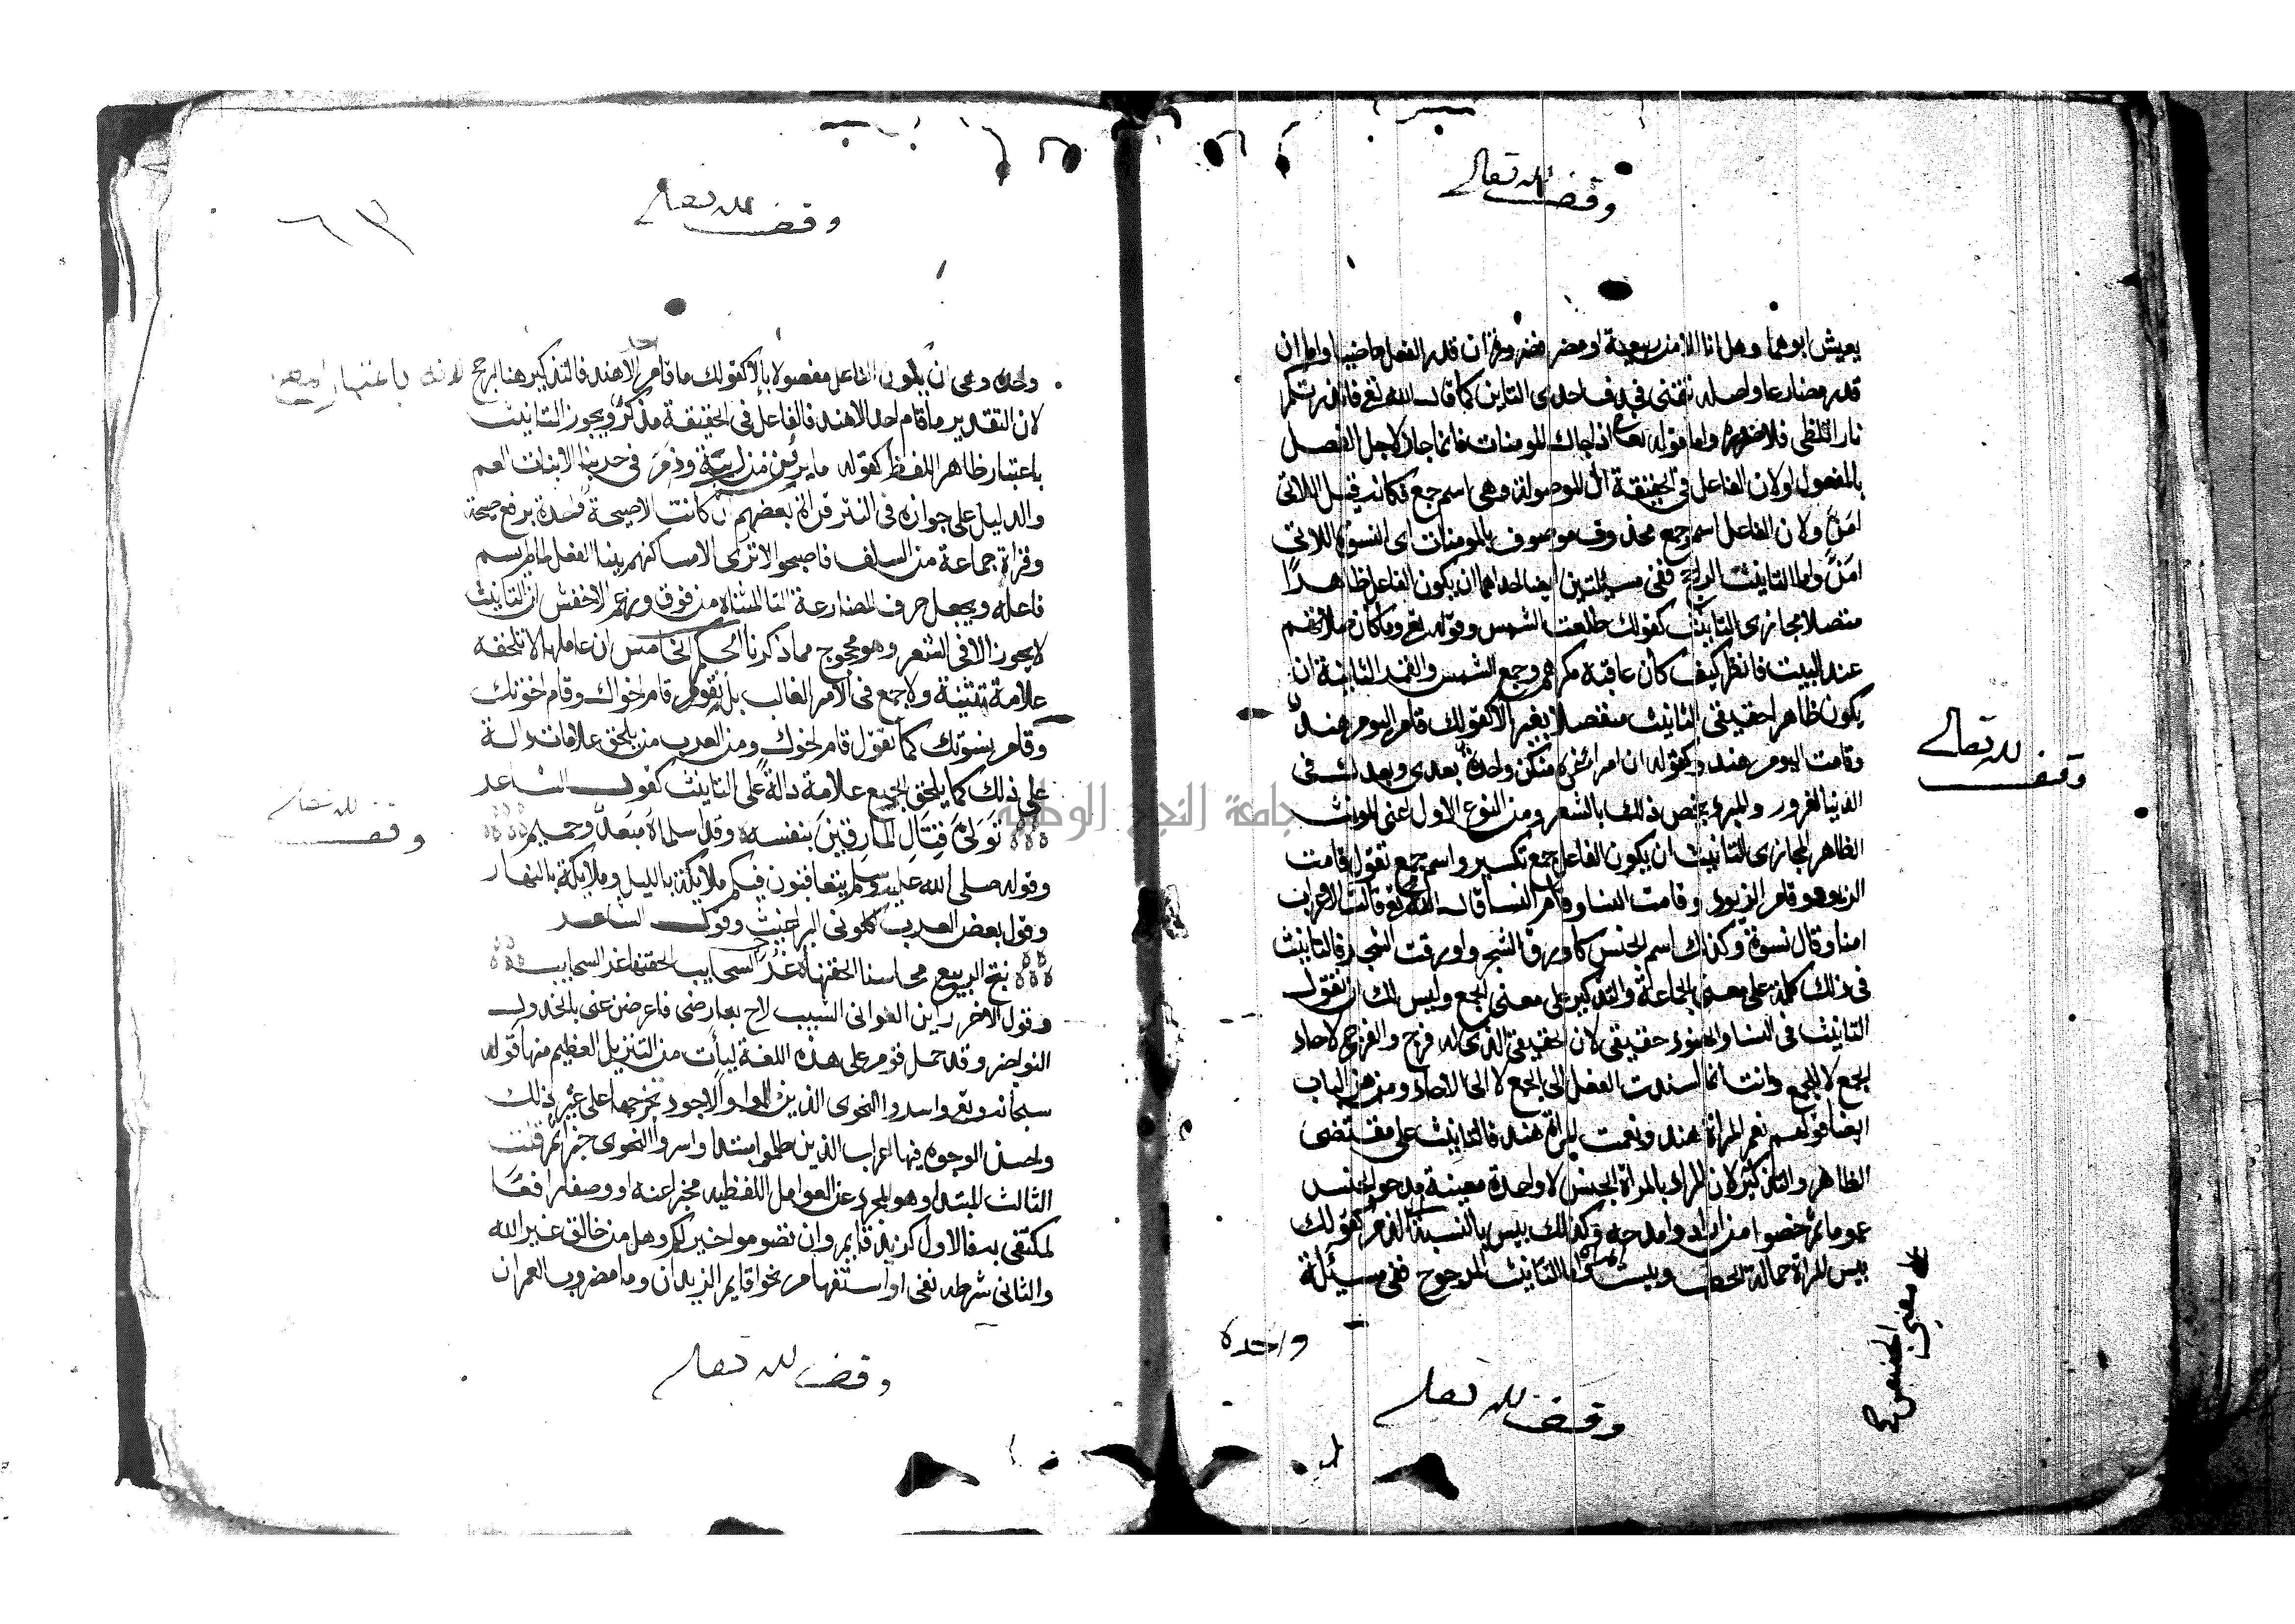 وقف لله تعالى
يعيش ابوهما وهل انا الا من ربيعة او مضر فضرورة ان قدر الفعل ماضيا واما ان
قدر مضارعا واصله تتمنى فحذف احدى التاين كما قال الله تع فانذرتكم
نارا تلظى فلا ضرورة واما قوله تعالى اذا جاك المومنات فانما جاز لاجل الفصل
بالمفعول او لان الفاعل في الحقيقة ال الموصولة وهي اسم جمع فكانه قيل اللاتي
امَنَّ ولان الفاعل اسم جمع محذوف موصوف بالمومنات اى النسوة اللاتي
امَنَّ واما التانيث الراجح ففي مسئلتين ايضا احداهما ان يكون الفاعل ظاهرا
متصلا مجازى التانيث كقولك طلعت الشمس وقوله تع وما كان صلاتهم
عند البيت فانظر كيف كان عاقبة مكرهم وجمع الشمس والقمر الثانية ان
يكون ظاهرا حقيقى التانيث منفصلا بغير الا كقولك قام اليوم هند
وقامت اليوم هند وكقوله ان امرا غره منكن واحدة بعدى وبعدك فى
الدنيا لمغرور والمبرد يخص ذلك بالشعر ومن النوع الاول اعنى المونث
الظاهر المجازى التانيث ان يكون الفاعل جمع تكسير او اسم جمع تقول قامت
الزيود وقام الزيود وقامت النسا وقام النسا قال الله تع قالت الاعراب
امنا وقال نسوة وكذلك اسم الجنس كاورق الشجر واورقت الشجر فالتانيث
فى ذلك كله على معنى الجماعة والتذكير على معنى الجمع وليس لك ان تقول
التانيث فى النسا والهنود حقيقى لان الحقيقى الذى له فرج والفرج لاحاد
الجمع لا للجمع وانت انما اسندت الفعل الى الجمع لا الى الاحاد ومن هذا الباب
ايضا قولهم نعم المراة هند ونعمت المراة هند فالتانيث على مقتضى
الظاهر والتذكير لان المراد بالمراة الجنس لا واحدة معينة مدحوا الجنس
عموما ثم خصوا من ارادوا مدحه وكذلك بيس بالنسبة الى الذم كقولك
بيس المراة حمالة الحطب وبيست المراة التانيث المرجوح ففى مسئلة
واحدة
وقف لله تعالى
وقف لله تعالى
وقف لله تعالى
٦٣
واحدة وهى ان يكون الفاعل مفصولا بالا كقولك ما قام الا هند فالتذكير هنا ارجح
لان التقدير ما قام احد الا هند فالفاعل فى الحقيقة مذكر ويجوز التانيث
باعتبار ظاهر اللفظ كقوله ما برئت من ريبة وذم فى حربنا الا بنات العم
والدليل على جوازه فى النثر قراة بعضهم ان كانت الا صيحة واحدة برفع صيحة
وقراة جماعة من السلف فاصبحوا لا ترى الا مساكنهم ببنا الفعل لما لم يسم
فاعله ويجعل حرف المضارعة التا المثناه من فوق وزعم الاخفش ان التانيث
لا يجوز الا فى الشعر وهو محجوج مما ذكرنا الحكم الخامس ان عاملها لا تلحقه
علامة تثنية ولا جمع فى الامر الغالب بل تقول قام اخواك وقام اخوتك
وقام نسوتك كما تقول قام اخوك ومن العرب من يلحق علامات دالة
على ذلك كما يلحق الجميع علامة دالة على التانيث كقول الشاعر
تَوَلّى قِتَال المارِقِينَ بنفسه وقد اسلماه مبعد وحميم
وقوله صلى الله عليه وسلم يتعاقبون فيكم ملايكة بالليل وملايكة بالنهار
وقول بعض العرب اكلونى البراغيث وقول الشاعر
نتج الربيع محاسنا القحنها غر السحايب
وقول الاخر راين الغوانى الشيب لاح بعارضى فاعرضن عنى بالخدود
النواضر وقد حمل قوم على هذه اللغة ايات من التنزيل العظيم منها قوله
سبحانه وتع واسروا النجوى الذين ظلموا والاجود تخرجها على غير ذلك
واحسن الوجوه فيها اعراب الذين ظلموا مبتدا واسروا النجوى خبرا ثم قلت
الثالث المبتدا وهو المجرد عن العوامل اللفظيه مخبرا عنه او وصفا رافعا
لمكتفى به فالاول كزيد قايم وان تصوموا خير لكم وهل من خالق غير الله
والثانى شرطه نفى او استفهام نحو اقايم الزيدان وما مضروب العمران
وقف لله تعالى
وقف لله تعالى
جامعة النجاح الوطنية